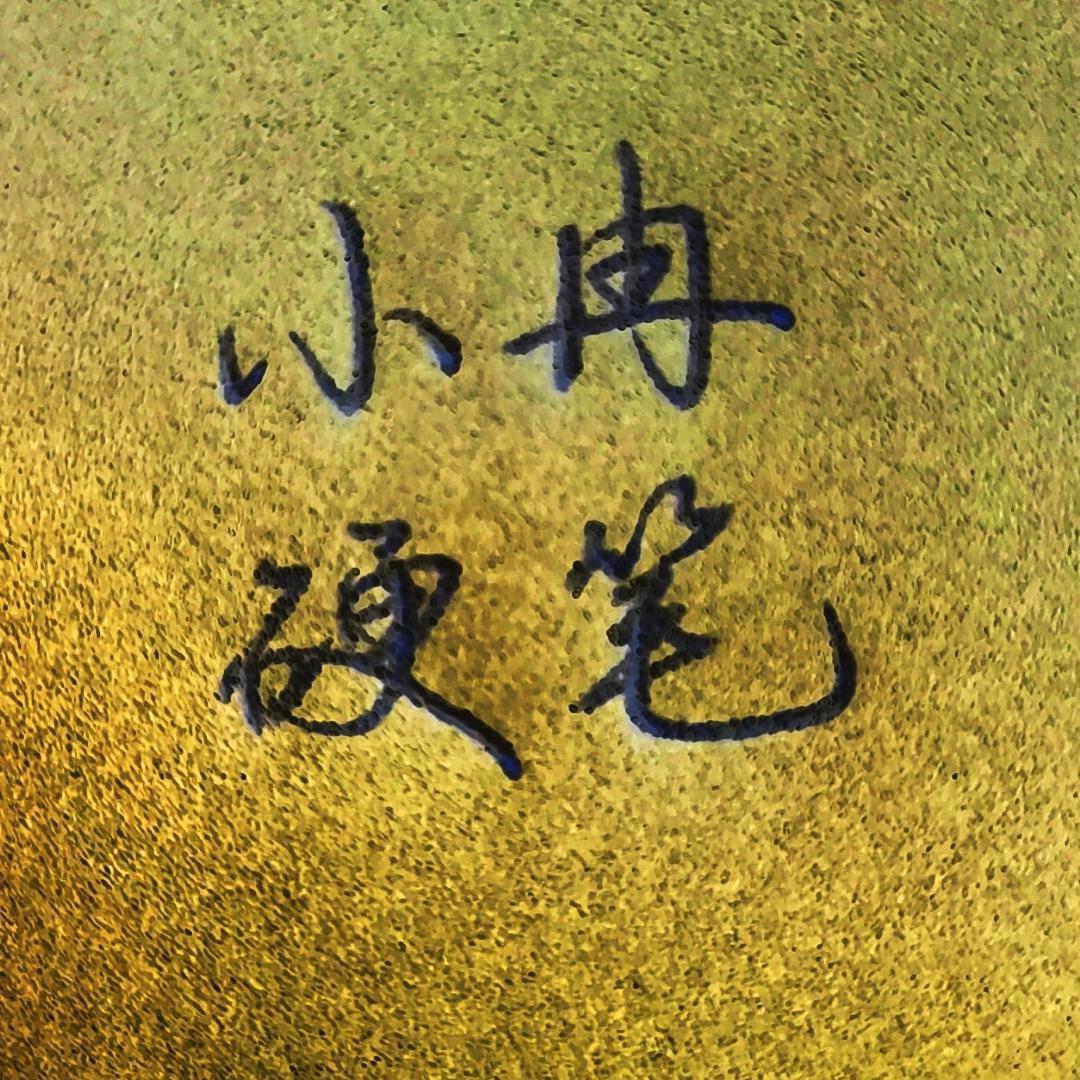 小冉
硬笔